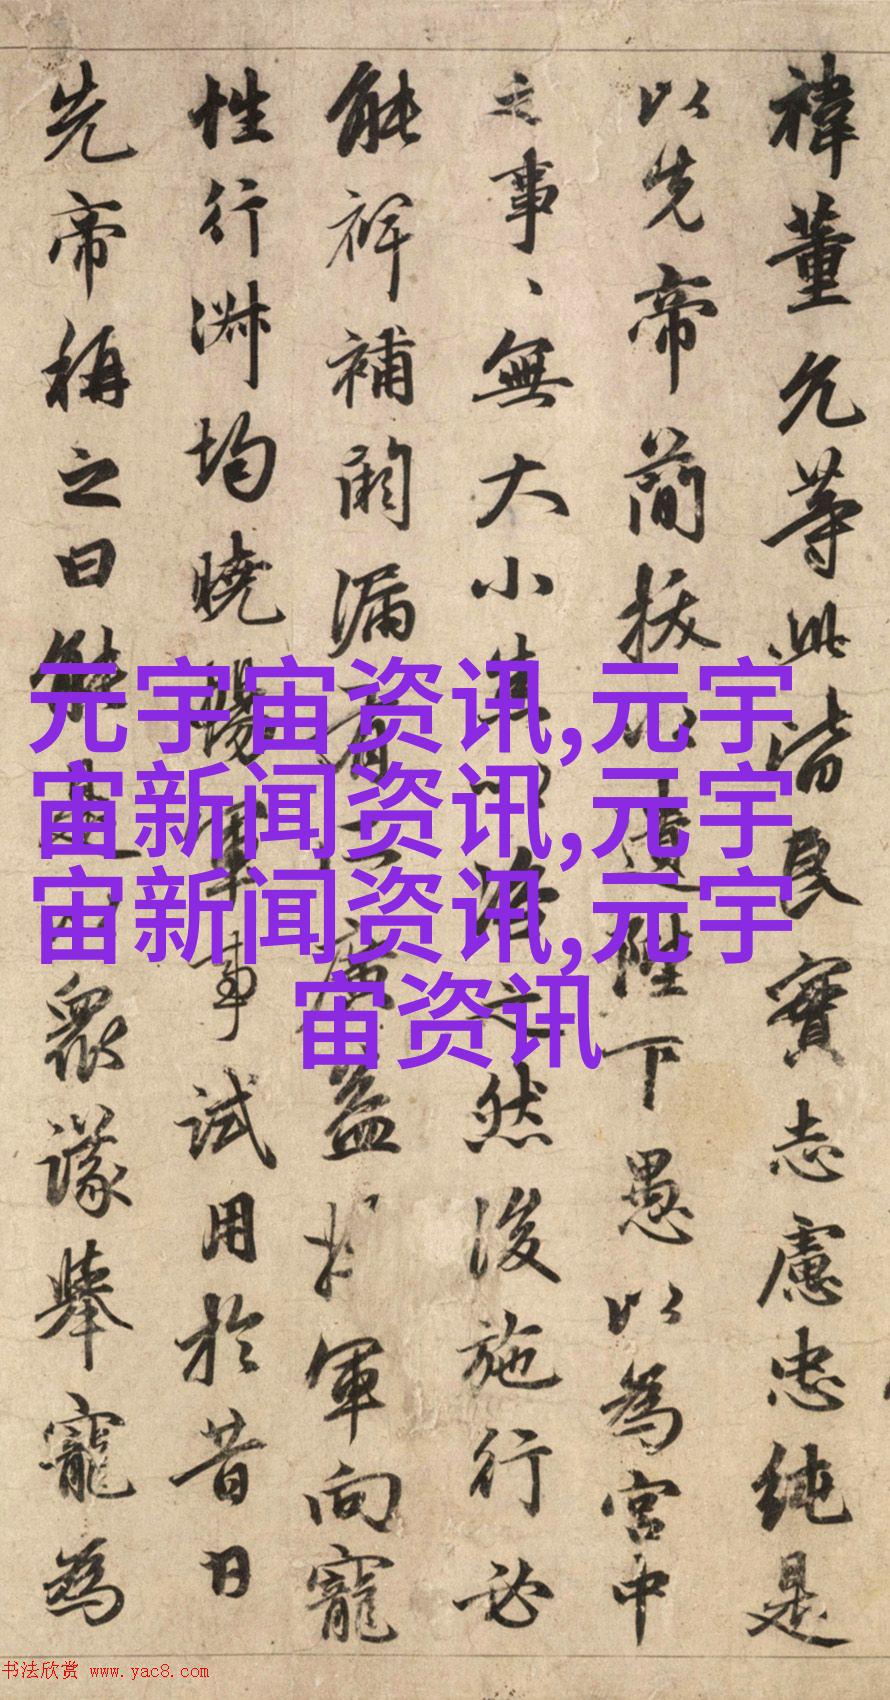 禕董允等此皆良實志慮忠純是
以先帝簡拔以遺陛下愚以為宮中
之事、無大小悉以咨之然後施行必
能裨補闕漏有廣益將軍向寵
性行淑均曉暢軍事試用於昔日
先帝稱之曰能是眾議舉寵為
元宇宙资讯,元宇
宙新闻资讯,元宇
宙新闻资讯,元宇
宙资讯
书法欣赏 www.yac8.com